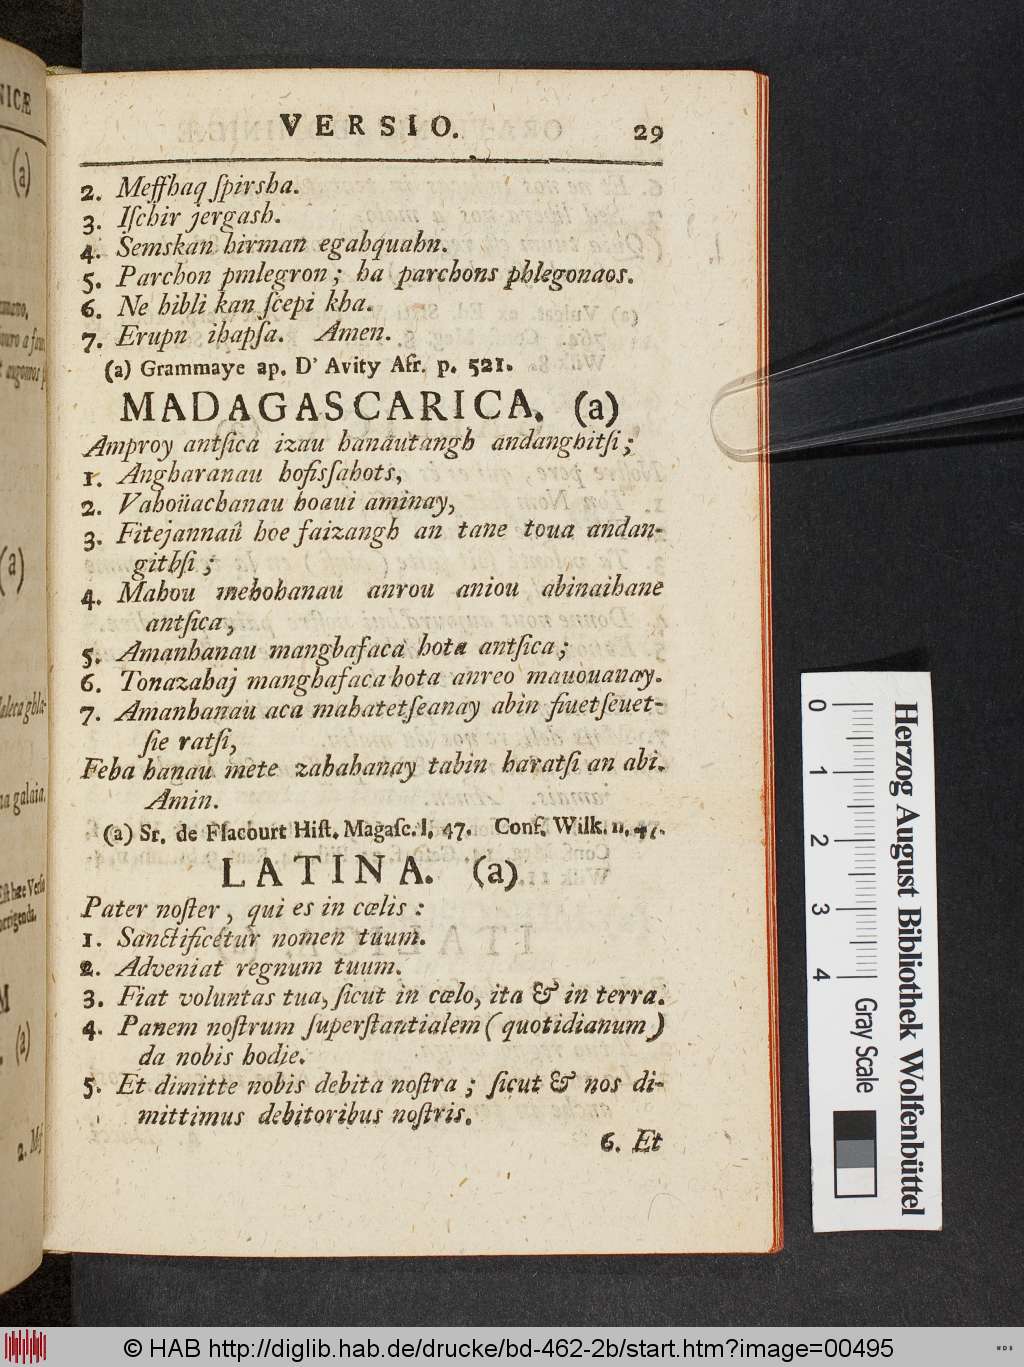 VERSIO. 29
2. Meffhaq ſpirsha.
3. Iſchir jergash.
4. Semskan hirman egahquahn.
5. Parchon pmlegron; ha parchons phlegonaos.
6. Ne hibli kan ſcepi kha.
7. Erupn ihapſa. Amen.
(a) Grammaye ap. D' Avity Afr. p. 521.
MADAGASCARICA. (a)
Amproy antſica izau hanautangh andanghitſi;
1. Angharanau hofisſahots,
2. Vahoüachanau hoaui aminay,
3. Fitejannaû hoe faizangh an tane toua andan-
githſi;
4. Mahou mehohanau anrou aniou abinaihane
antſica,
5. Amanhanau manghafaca hota antſica;
6. Tonazahaj manghafaca hota anreo mauouanay.
7. Amanhanau aca mahatetſeanay abin fiuetſeuet-
ſie ratſi,
Feha hanau mete zahahanay tabin haratſi an abi.
Amin.
(a) Sr. de Flacourt Hiſt. Magaſc. l. 47. Conf. Wilk. n. 47.
LATINA. (a)
Pater noſter, qui es in cœlis:
1. Sanctificetur nomen tuum.
2. Adveniat regnum tuum.
3. Fiat voluntas tua, ſicut in cœlo, ita & in terra.
4. Panem noſtrum ſuperſtantialem (quotidianum)
da nobis hodie.
5. Et dimitte nobis debita noſtra; ſicut & nos di-
mittimus debitoribus noſtris.
6. Et
NICÆ
(a)
(a)
na galaia.
M
(a)
0 1 2 3 4
Gray Scale
Herzog August Bibliothek Wolfenbüttel
© HAB http://diglib.hab.de/drucke/bd-462-2b/start.htm?image=00495